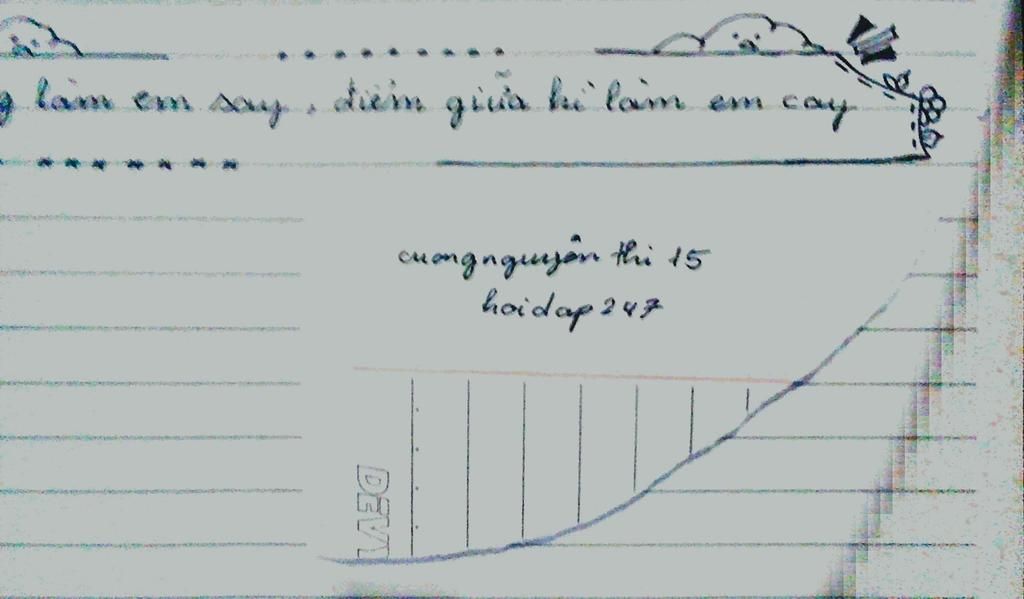 làm em say, điểm giữa kì làm em cay
cuongnguyên thi 15
hoidap247